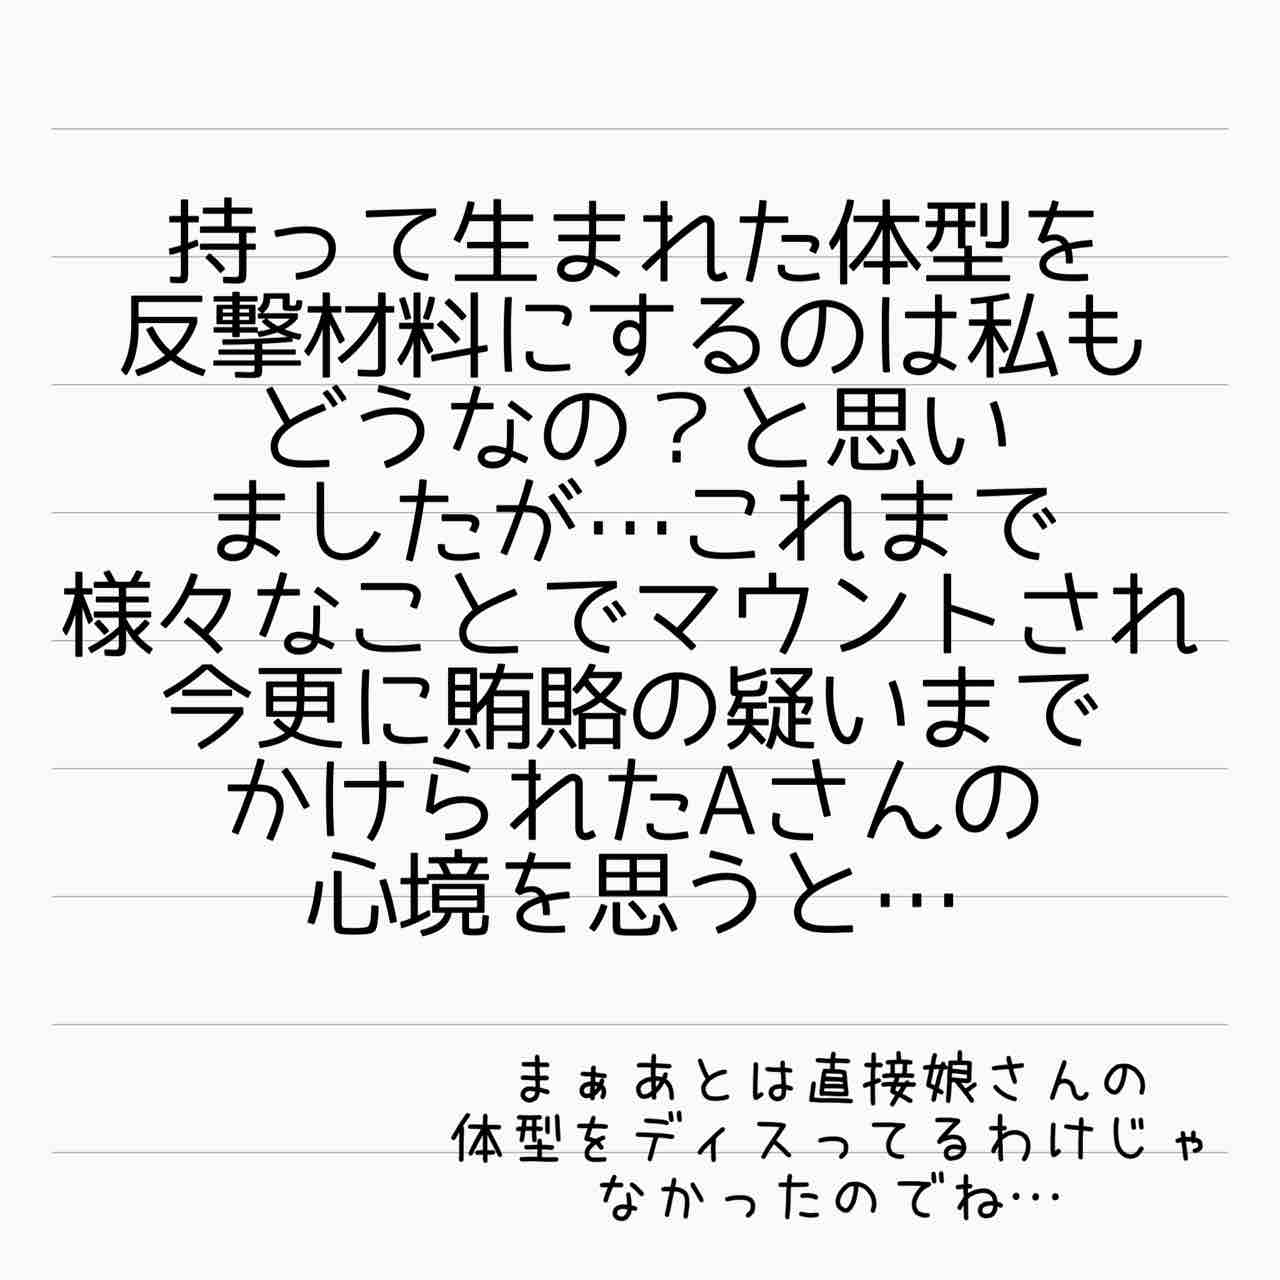 持って生まれた体型を
反撃材料にするのは私も
どうなの？と思い
ましたが…これまで
様々なことでマウントされ
今更に賄賂の疑いまで
かけられたAさんの
心境を思うと…
まぁあとは直接娘さんの
体型をディスってるわけじゃ
なかったのでね…